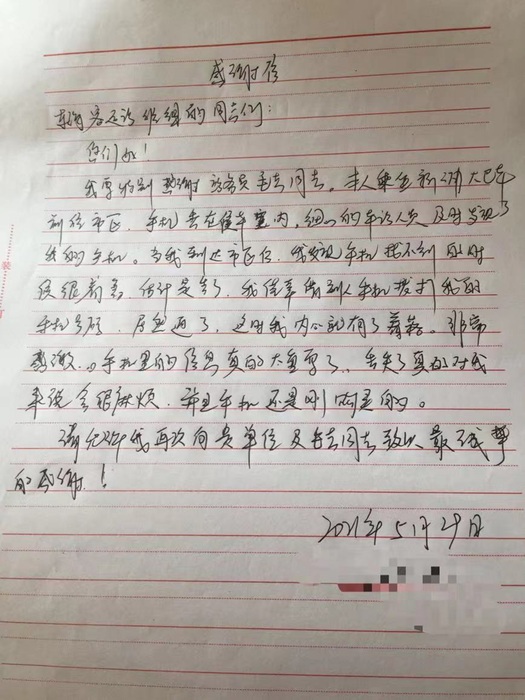 感谢信
东湖客运站班组的同志们:
您们好!
我要特别感谢 同志。本人乘坐新 大巴车
前往市区,手机丢在候车室内,细心的 人员及时发现了
我的手机。当我到达市区后,我发现手机找不到 时
很着急,估计是丢了,我借 别人手机拨打我的
手机号码,居然通了,这时我内心就有了着落。非常
感激。手机里的信息真的太重要了,丢失了真的对我
来说会很麻烦,并且手机还是刚 的。
请允许我再次向贵单位及 同志致以最诚挚
的感谢!
2021年5月29日